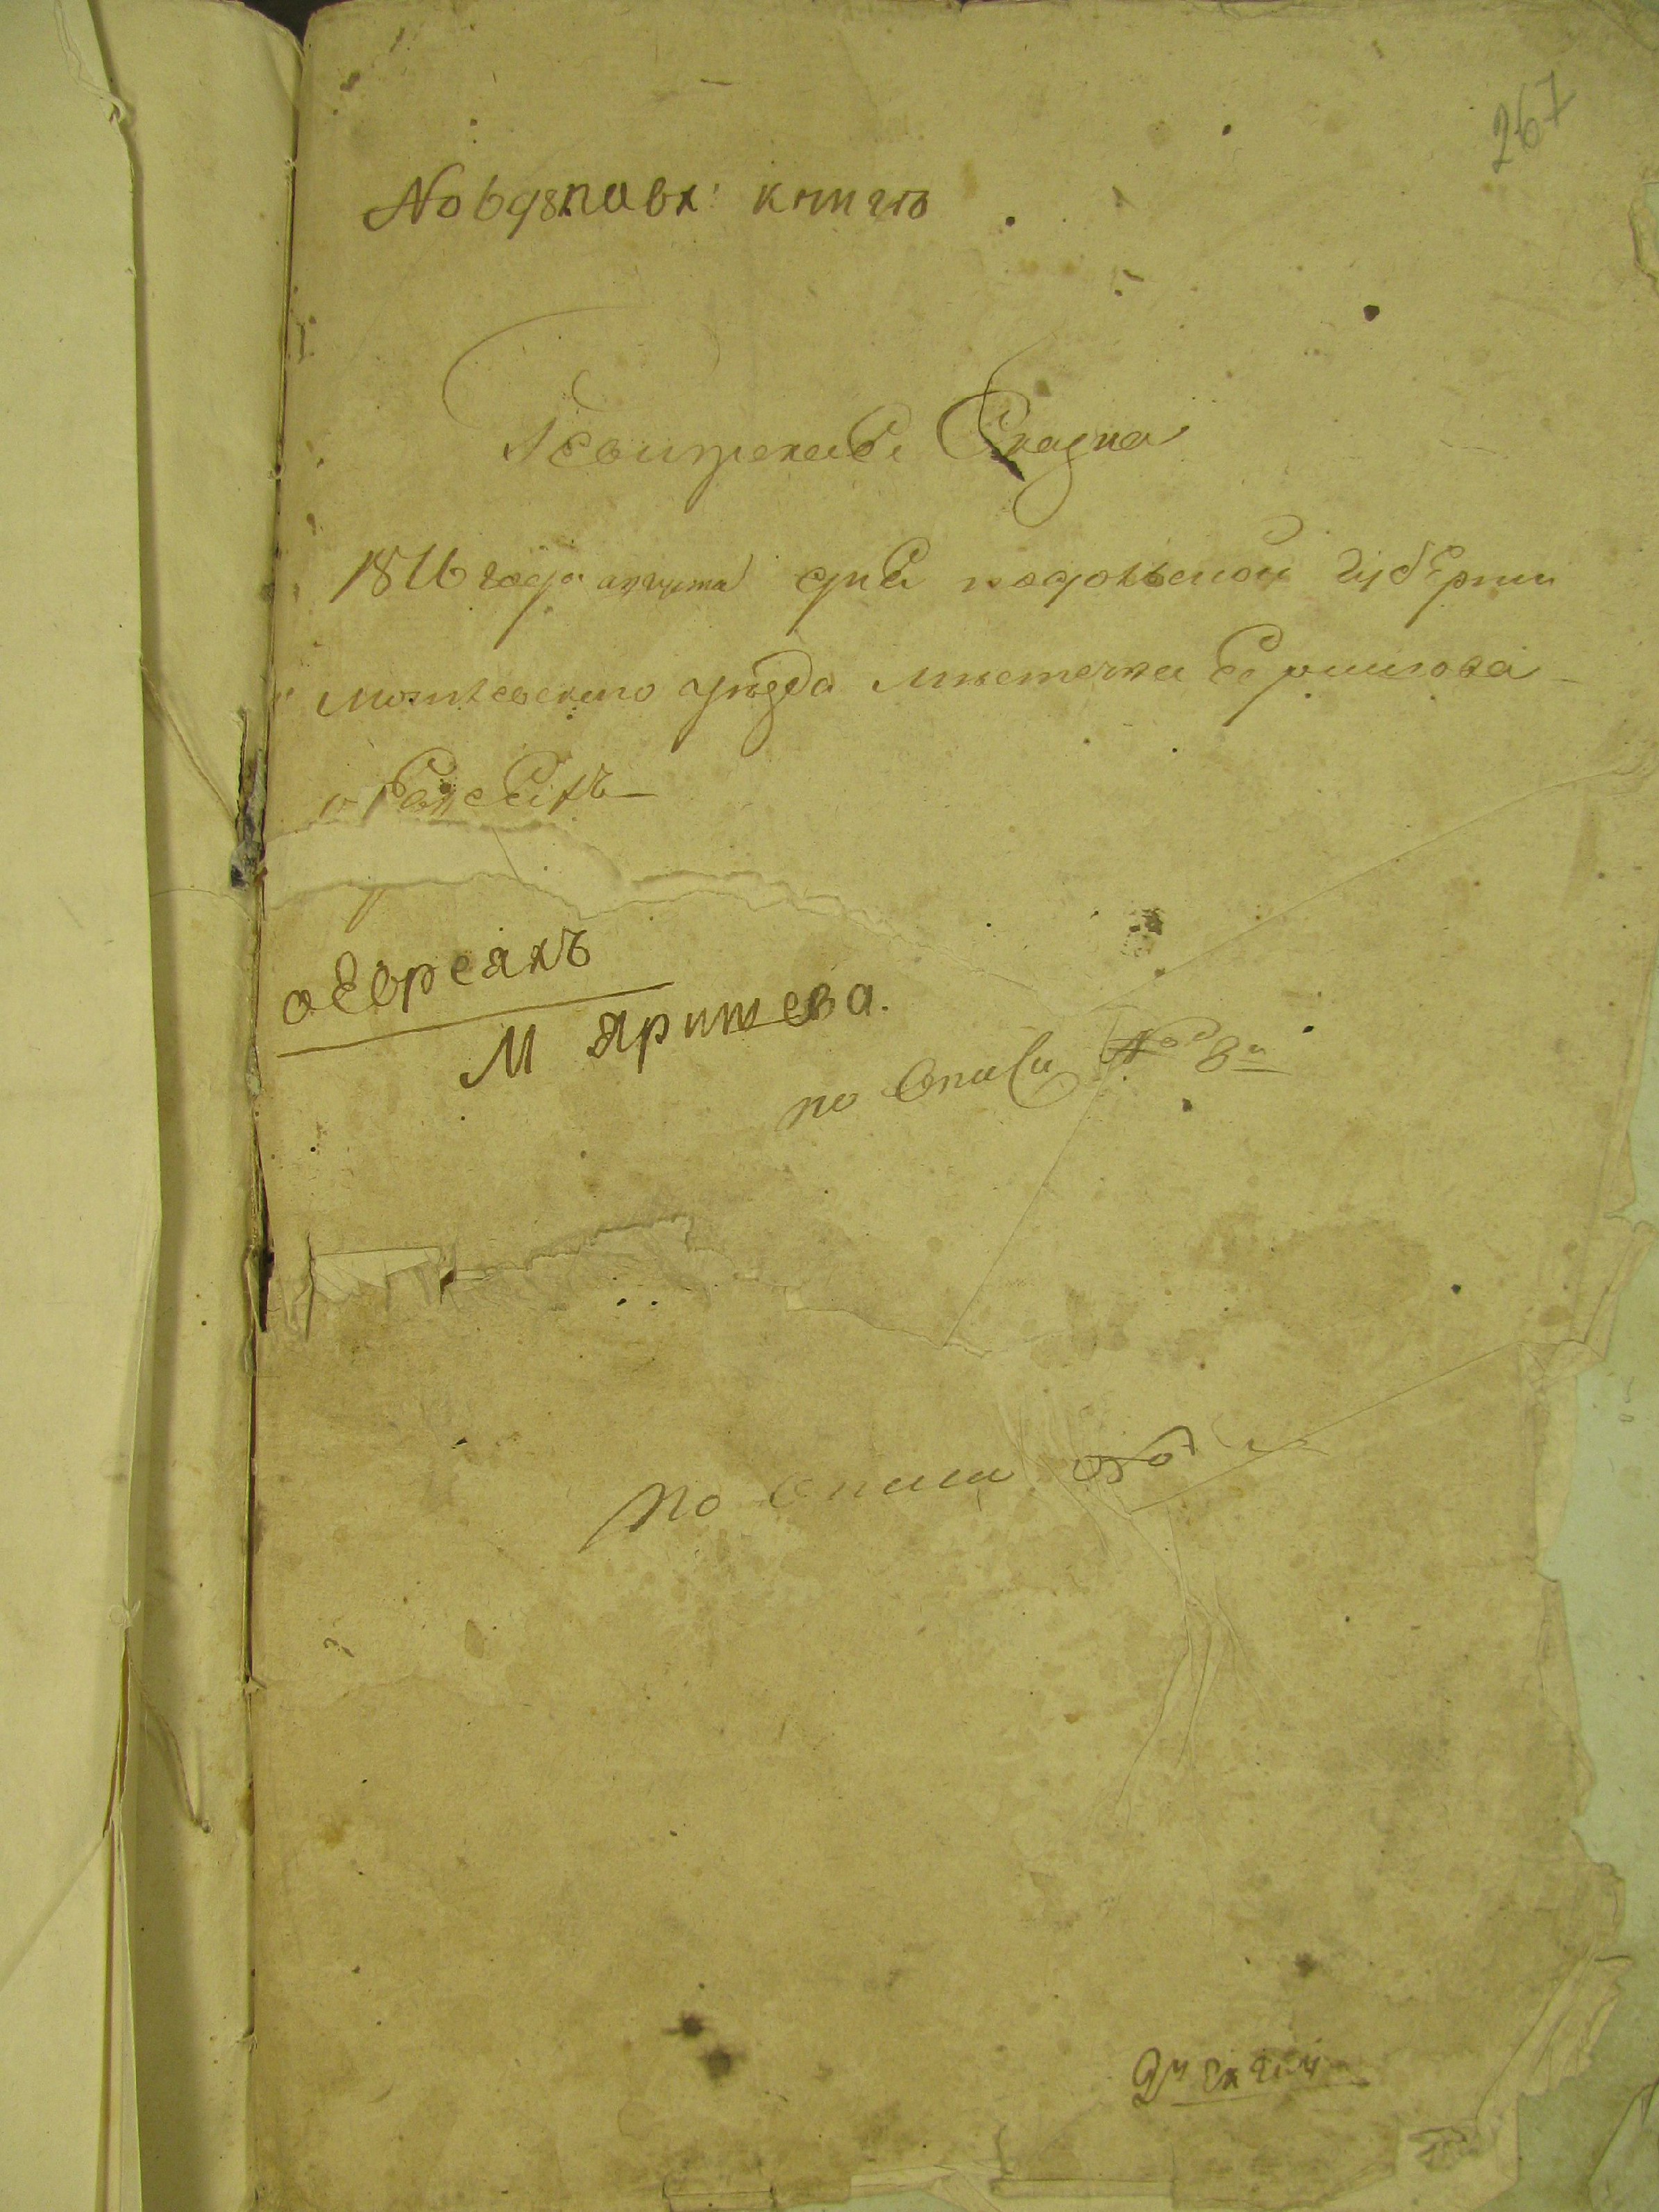 267
№ 698 по вх: книгѣ
Ревижская Сказка
1816 года августа дня подольской губернии
могилевского уезда местечка Еришова
о Евреяхъ
о Евреяхъ
М Яришева.
по Описи № 8й
по Описи